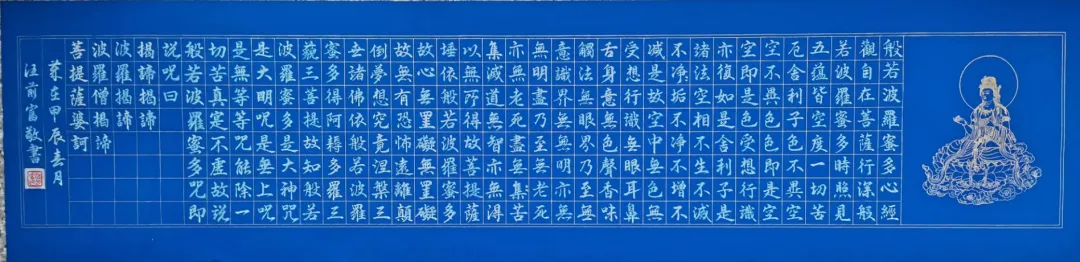 般若波羅蜜多心經
觀自在菩薩行深般
若波羅蜜多時照見
五蘊皆空度一切苦
厄舍利子色不異空
空不異色色即是空
空即是色受想行識
亦復如是舍利子是
諸法空相不生不滅
不淨垢不淨不增不
減是故空中無色無
受想行識無眼耳鼻
舌身意無色聲香味
觸法無眼界乃至無
意識界無無明亦無
無明盡乃至無老死
亦無老死盡無集苦
集滅道無智亦無得
以無所得故菩提薩
埵依般若波羅蜜多
故心無罣礙無罣礙
故無有恐怖遠離顛
倒夢想究竟涅槃三
世諸佛依般若波羅
蜜多得阿耨多羅三
藐三菩提故知般若
波羅蜜多是大神咒
是大明咒是無上咒
是無等等咒能除一
切苦真實不虛故說
般若波羅蜜多咒即
說咒曰
揭諦揭諦
波羅揭諦
波羅僧揭諦
菩提薩婆訶
歲在甲辰春月
汪前富敬書